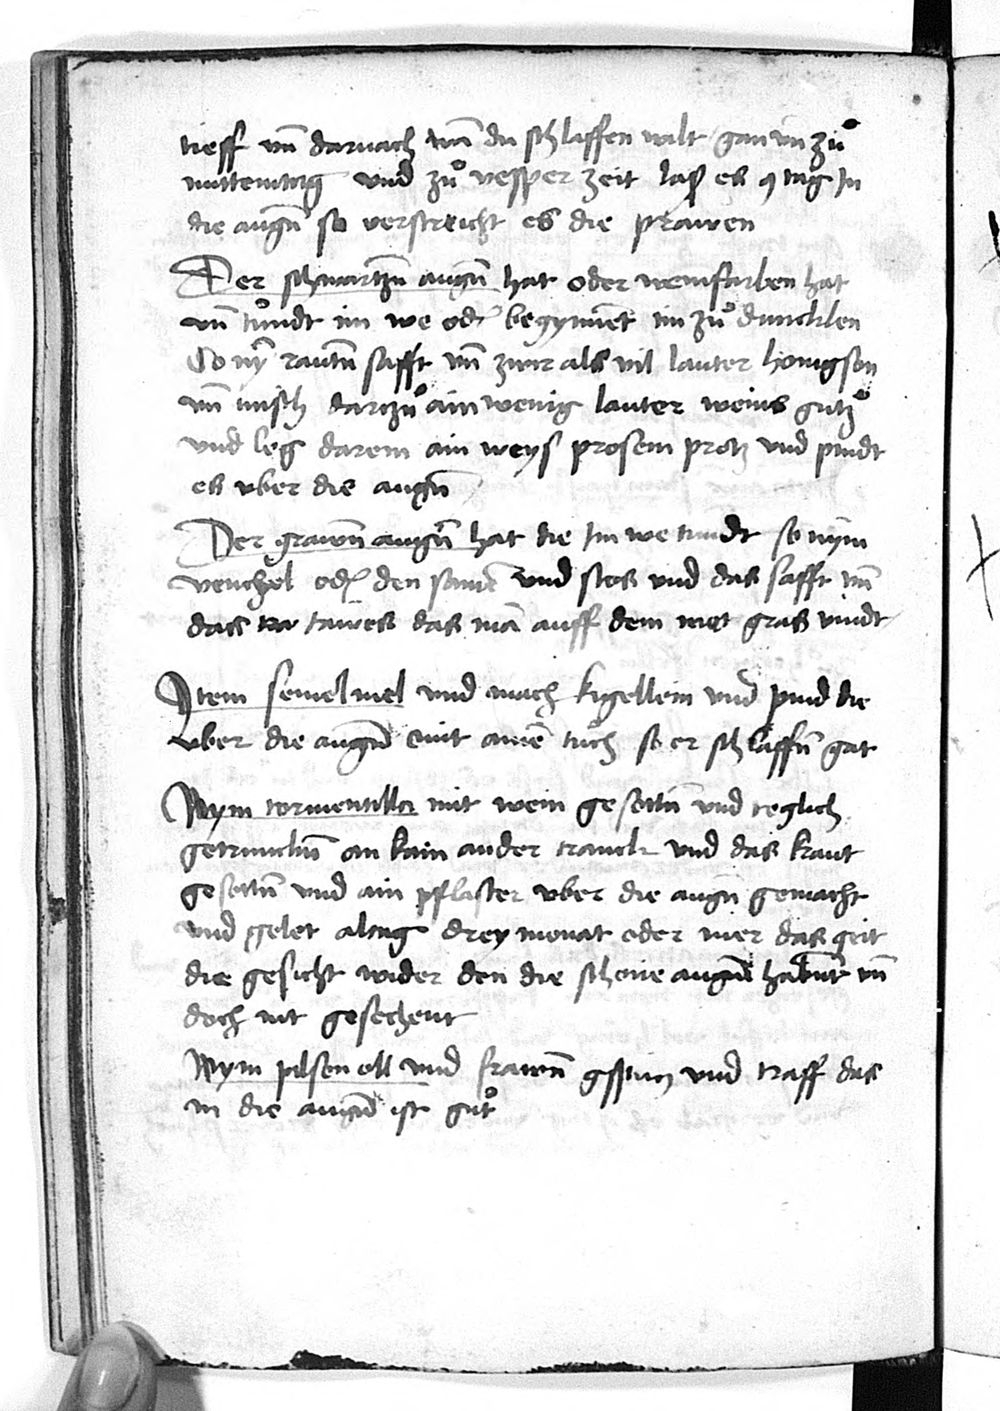 tieff vn̄ darnach wā du schlaffen wilt gan vn̄ zů
mittemtag vnd zů vesper zeit las es 9 tag jn
die augn̄ so verstreicht es die prawen
Der schwartzn̄ augn̄ hat oder weinfarben hat
vn̄ tůndt im we od begynnēt im zů duncklen
So nȳ rautn̄ safft vn̄ zwir als vil lauter honigson
vn̄ misch darzů ain wenig lauter weins gutz
vnd leg darein ain weys prosem protz vnd pindt
es vber die augn̄
Der grawn̄ augn̄ hat die jm we tundt so nym
venchel od den samē vnd stos vnd das safft vn̄
dass tawes das mā auff dem gras vindt
Item semel mel vnd mach kigellein vnd pind die
vber die augn̄ mit ainē tuch so er schlaffn̄ gat
Nym tormentilla mit wein gesottn̄ vnd teglich
getrunckn̄ an kain ander tranck vnd das kraut
gesottn̄ vnd ain pflaster vber die augn̄ gemacht
vnd gelet alltag drey monat oder vier das geit
die gesicht wider den die schone augn̄ habnt vn̄
doch nit gesechent
Nym pilsen oll vnd frawn̄ gspun vnd traff das
in die augn̄ ist gůt